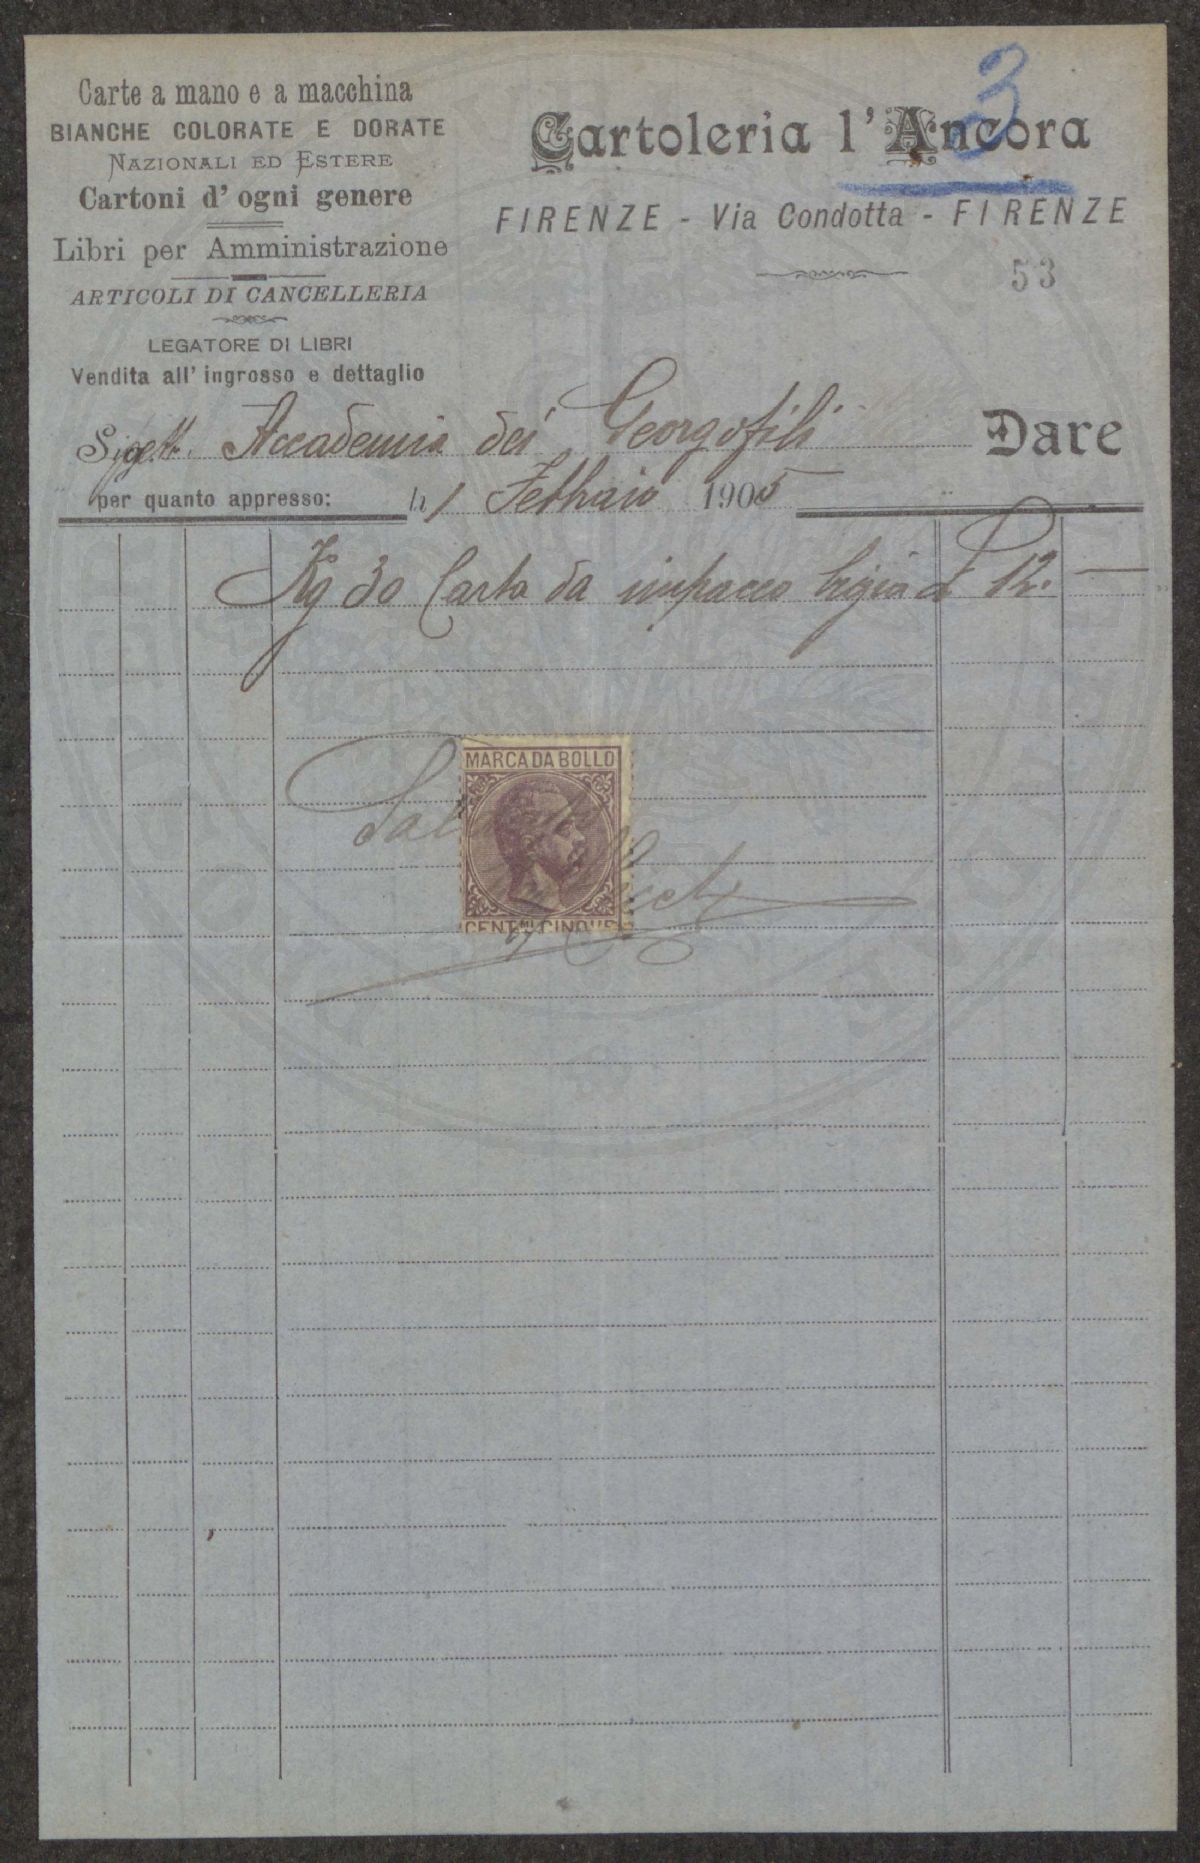 Carte a mano e a macchina
BIANCHE COLORATE E DORATE
NAZIONALI ED ESTERE
Cartoni d' ogni genere
Libri per Amministrazione
ARTICOLI DI CANCELLERIA
LEGATORE DI LIBRI
Vendita all' ingrosso e dettaglio
3
Cartoleria l'Ancora
FIRENZE - Via Condotta - FIRENZE
53
Accademia dei Georgofili Dare
per quanto appresso: li 1 Febbraio 1905
Kg 30 Carta da impacco bigia a 12. —
MARCA DA BOLLO
CENT.MI CINQUE